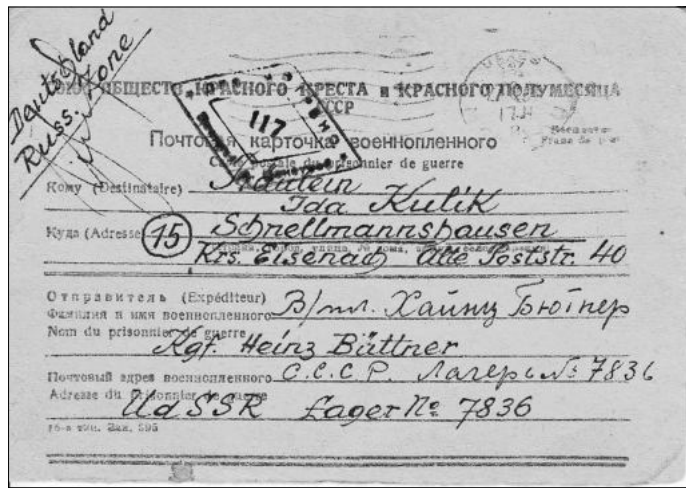 Deutschland
Russ. Zone
СОЮЗ ОБЩЕСТВ КРАСНОГО КРЕСТА и КРАСНОГО ПОЛУМЕСЯЦА
СССР
117
Почтовая карточка военнопленного
Carte postale du prisonnier de guerre
Franc de port
Кому (Destinataire) Fräulein
Ida Kulik
Куда (Adresse) 15 Schnellmannshausen
Krs. Eisenach Alte Poststr. 40
Отправитель (Expéditeur)
Фамилия и имя военнопленного В/пл. Хайнц Бютнер
Nom du prisonnier de guerre
Kgf. Heinz Büttner
Почтовый адрес военнопленного С.С.С.Р. Лагерь № 7836
Adresse du prisonnier de guerre
UdSSR Lager № 7836
16-я тип. Зак. 595